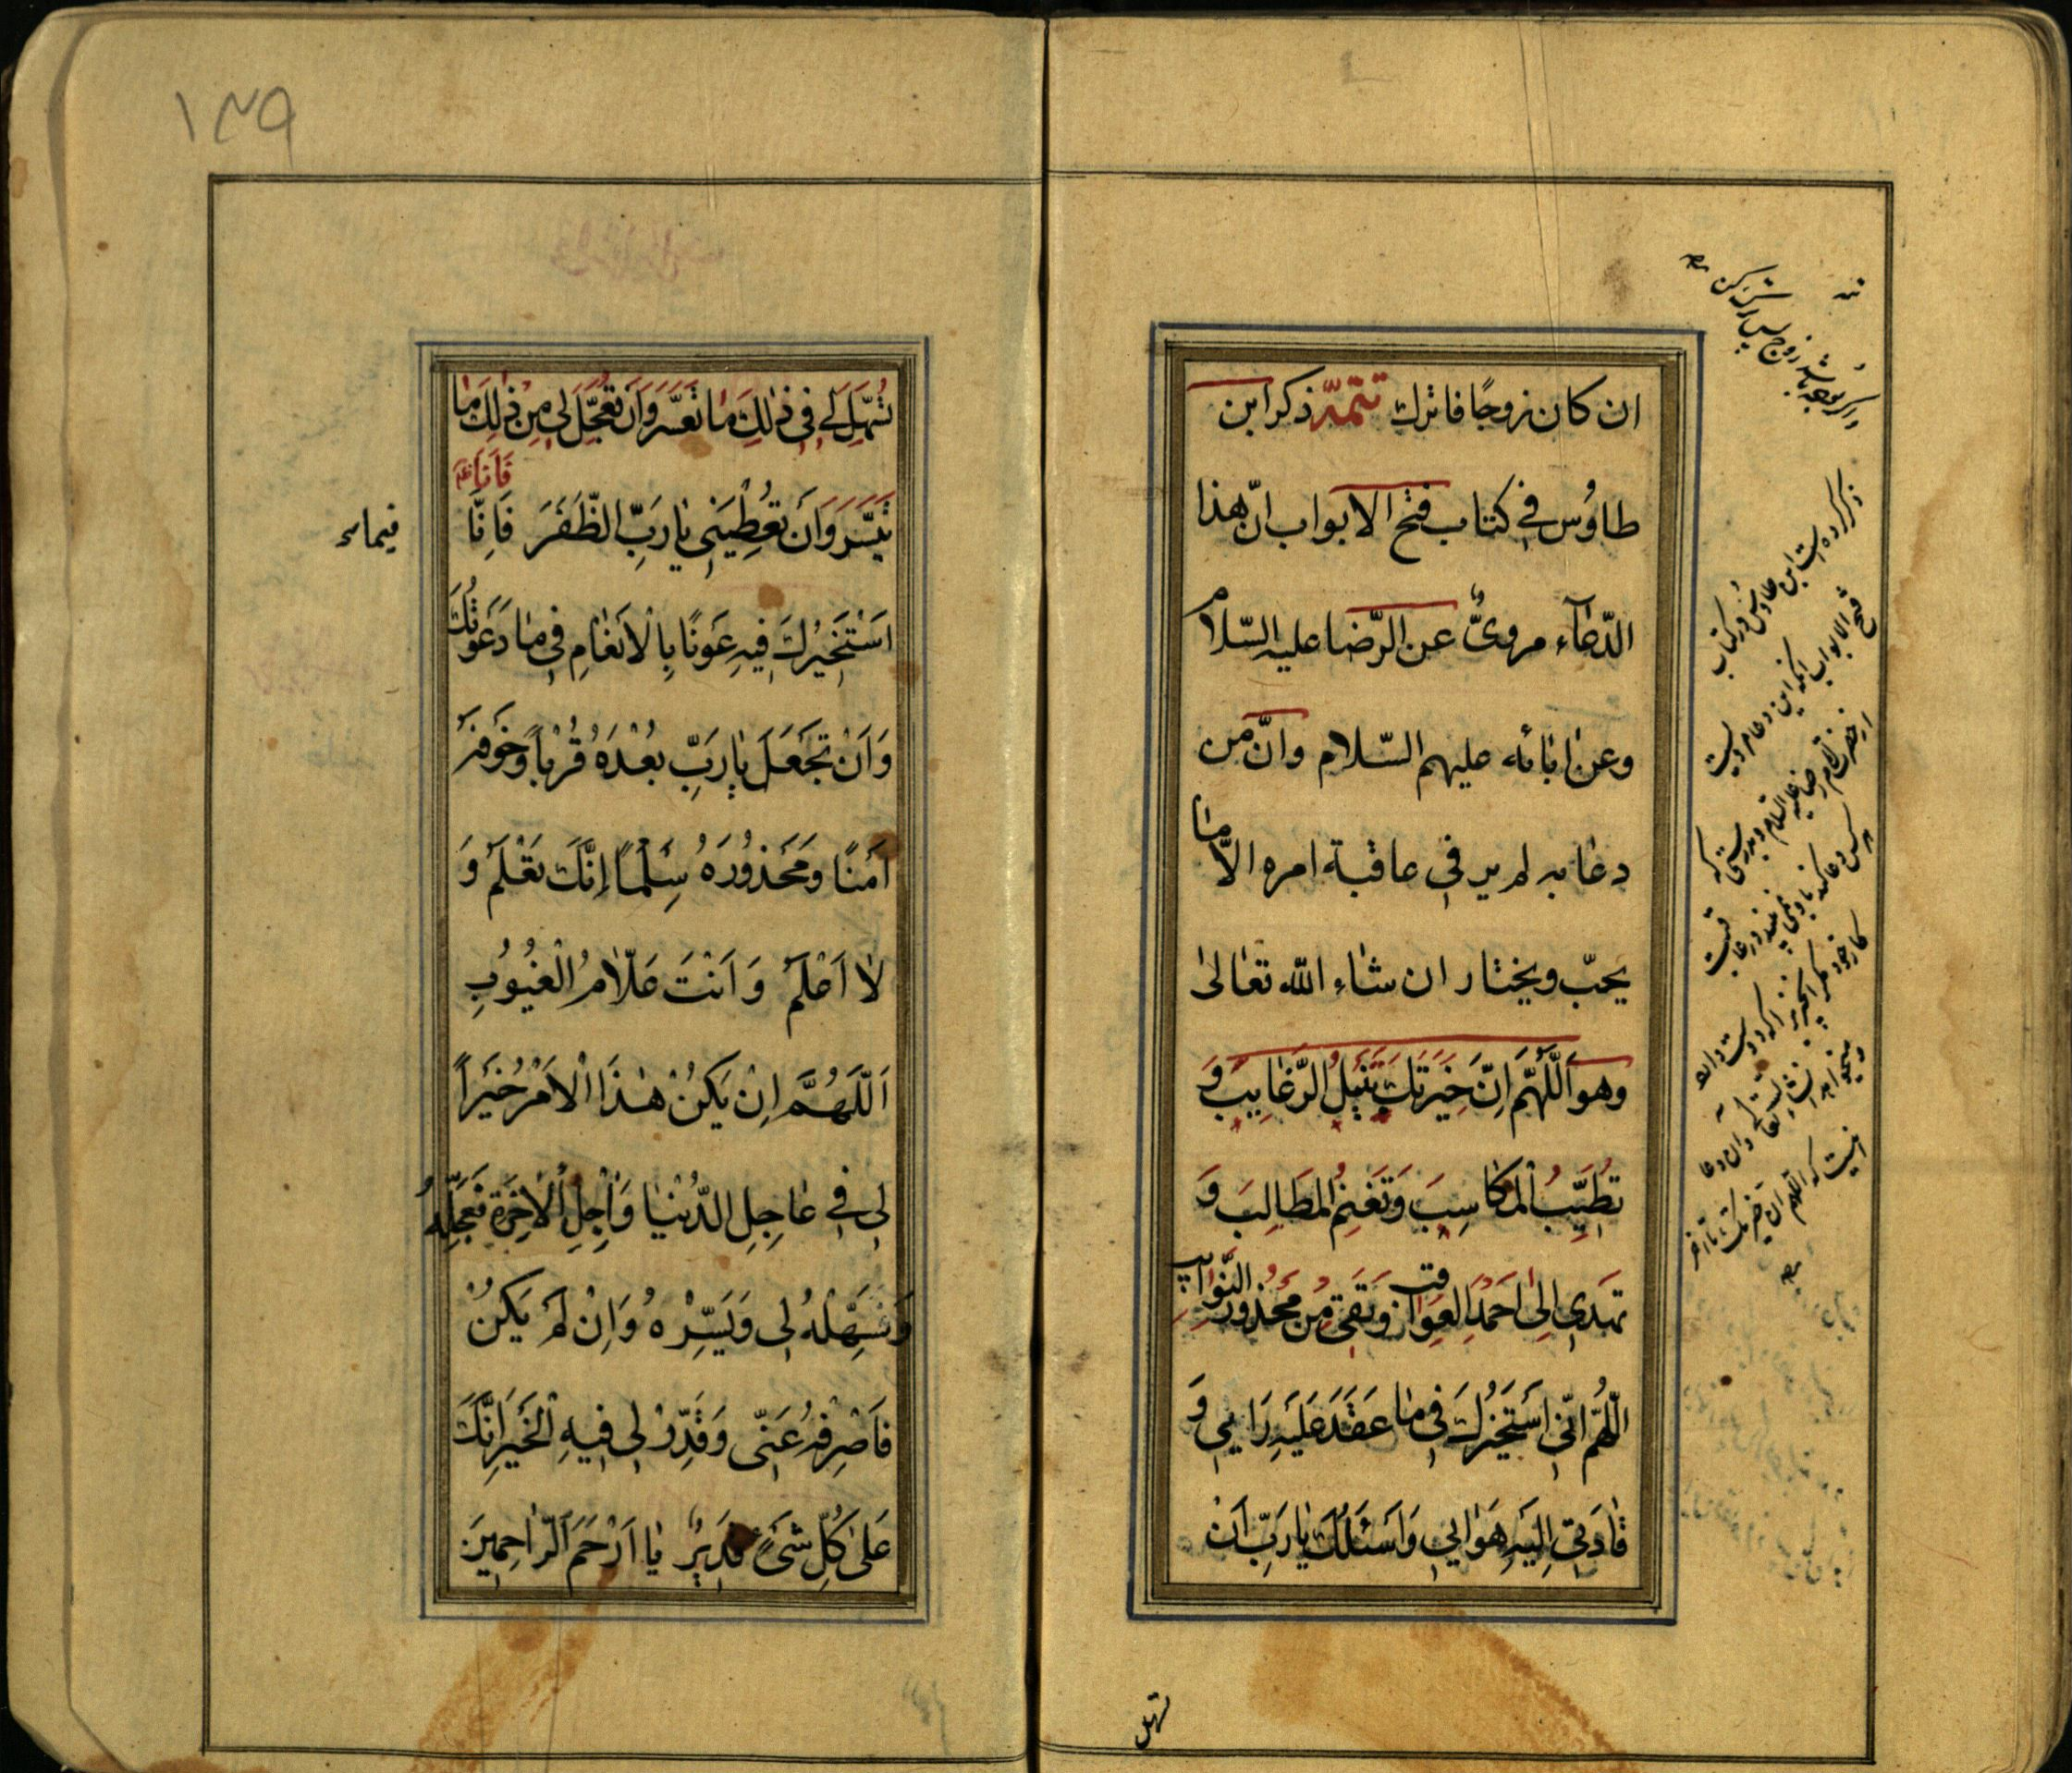 ان كان زوجًا فاترك تتمّة ذكر ابن
طاوُس في كتاب فتح الابواب انّ هذا
الدّعآء مروىٌّ عن الرّضا عليه السّلام
وعن اٰبائه عليهم السّلام وانّ من
دعٰا به لم ير في عاقبة امره الاّ مٰا
يحبّ ويختار ان شٰاء اللّه تعٰالىٰ
وهو اَللّهُمَّ اِنَّ خِيَرَتَكَ تُنيلُ الرَّغٰايِبَ وَ
تُطَيِّبُ الْمَكٰاسِبَ وَتُغْنِمُ المَطٰالِبَ وَ
تَهدى اِلىٰ اَحمَدِ العَوٰاقِبِ وَتَقى مِن مَحْذورِ النَّوٰآئِبِ
اللّهُمَّ اِنّى اَستَخيرُكَ فى مٰا عَقَدَ عَلَيهِ رَايي وَ
قٰادَنى اِلَيهِ هَوٰايي وَاَسْئَلُكَ يٰا رَبِّ اَنْ
تسهل
ذكر كرده است ابن طاوس در كتاب
فتح الابواب آنكه اين دعا مرويست
از حضرت امام رضا عليه السلام و بدرستى كه
اينست كه اللهم ان خيرتك تا آخر
١٣٩
تُسَهِّلَ لى فى ذٰلِكَ مٰا تَعَسَّرَ وَاَن تُعَجِّلَ لى مِن ذٰلِكَ مٰا
فَاَنَا
تَيَسَّرَ وَاَن تُعْطِيَنى يٰا رَبِّ الظَّفَرَ فَاِنّا
فيماء
اَسْتَخيرُكَ فيهِ عَونًا بِالْاَنعٰامِ فى مٰا دَعَوْتُكَ
وَاَنْ تَجْعَلَ يٰا رَبِّ بُعْدَهُ قُرْباً وَخَوفَهُ
اَمْنًا وَمَحْذُورَهُ سِلْمًا اِنَّكَ تَعْلَمُ وَ
لٰا اَعْلَمُ وَاَنْتَ عَلّٰامُ الْغُيُوبِ
اَللّهُمَّ اِنْ يَكُنْ هٰذَا الْاَمْرُ خَيْراً
لى فى عٰاجِلِ الدُّنْيٰا وَاٰجِلِ الْاٰخِرَةِ فَعَجِّلْهُ
وَسَهِّلْهُ لى وَيَسِّرْهُ وَاِنْ لَمْ يَكُنْ
فَاَصْرِفْهُ عَنّى وَقَدِّرْ لى فيهِ الْخَيْرَ اِنَّكَ
عَلىٰ كُلِّ شَىْءٍ قَديرٌ يٰا اَرْحَمَ الرّٰاحِمينَ